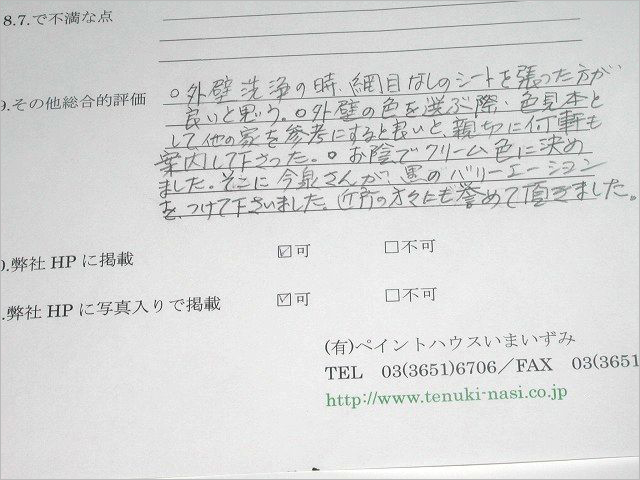 8.7.で不満な点
9.その他総合的評価
○外壁洗浄の時、網目なしのシートを張った方が
良いと思う。○外壁の色を選ぶ際、色見本と
して他の家を参考にすると良いと、親切に何軒も
案内して下さった。○お陰でクリーム色に決め
ました。そこに今泉さんが、黒のバリーエーション
を、つけて下さいました。近所の方々にも誉めて頂きました。
0.弊社HPに掲載 ☑可 □不可
.弊社HPに写真入りで掲載 ☑可 □不可
(有)ペイントハウスいまいずみ
TEL 03(3651)6706／FAX 03(3651
http://www.tenuki-nasi.co.jp